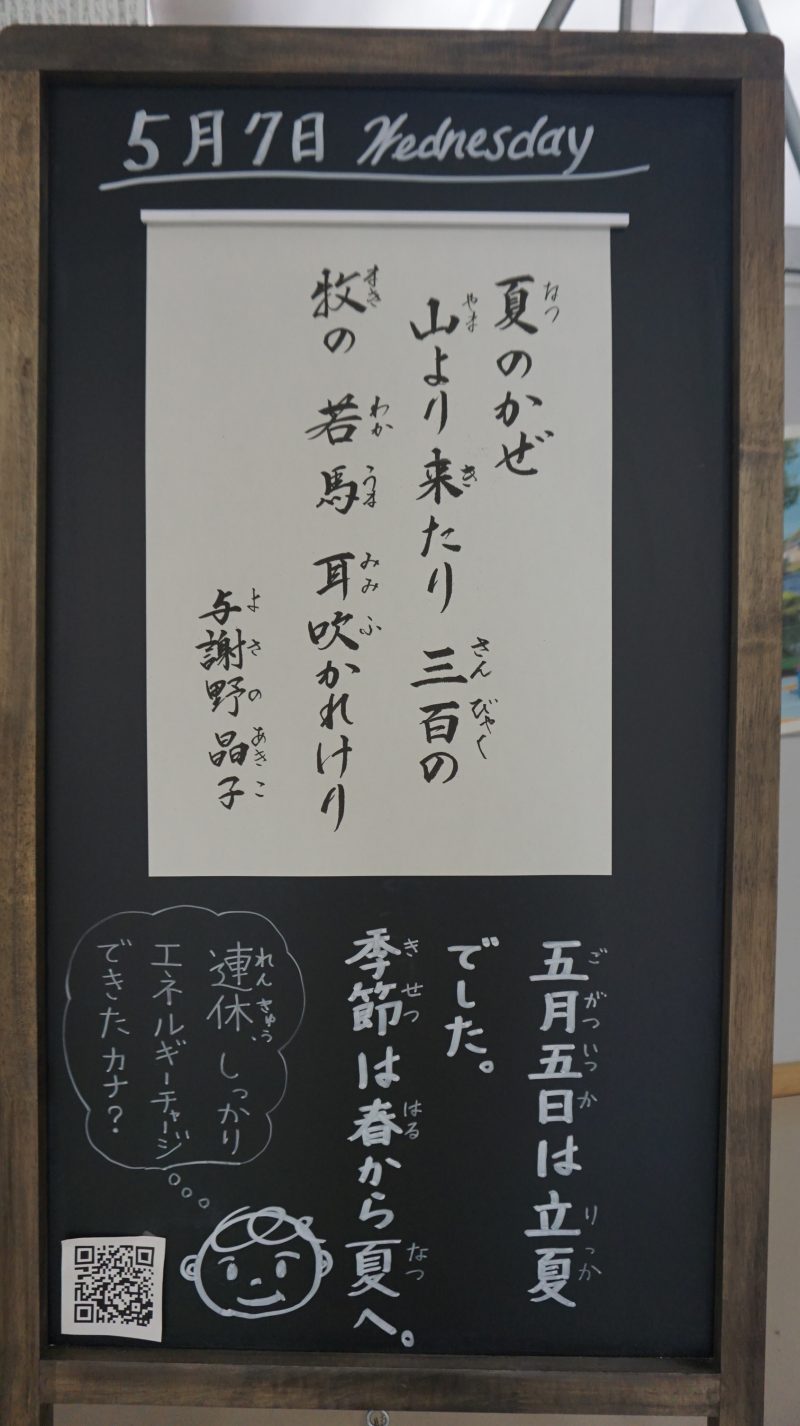 5月7日 Wednesday
夏のかぜ
山より来たり 三百の
牧の 若馬 耳吹かれけり
与謝野 晶子
五月五日は立夏
でした。
季節は春から夏へ。
連休、しっかり
エネルギーチャージ
できたカナ?